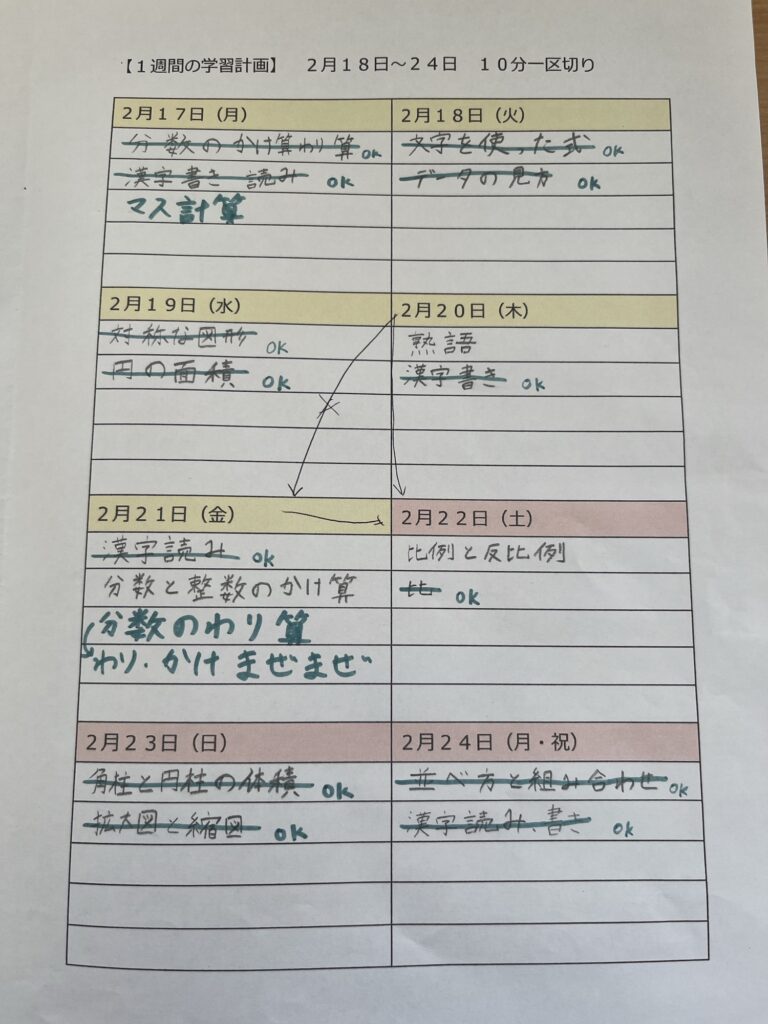 【１週間の学習計画】　２月１８日～２４日　１０分一区切り
２月１７日（月）
分数のかけ算わり算 OK
漢字書き 読み OK
マス計算
２月１８日（火）
文字を使った式 OK
データの見方 OK
２月１９日（水）
対称な図形 OK
円の面積 OK
２月２０日（木）
熟語
漢字書き OK
２月２１日（金）
漢字読み OK
分数と整数のかけ算
分数のわり算
わり・かけ まぜまぜ
２月２２日（土）
比例と反比例
比 OK
２月２３日（日）
角柱と円柱の体積 OK
拡大図と縮図 OK
２月２４日（月・祝）
並べ方と組み合わせ OK
漢字読み、書き OK